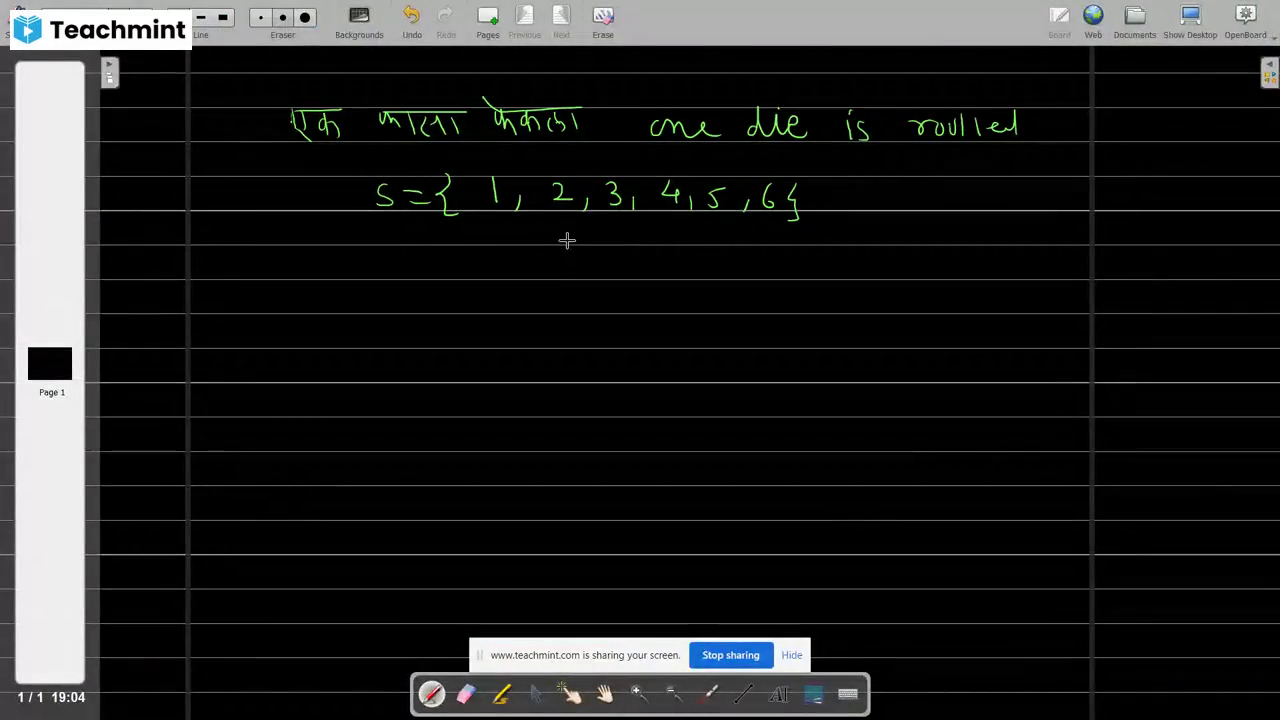 Teachmint
Line
Eraser
Backgrounds
Undo
Redo
Pages
Previous
Next
Erase
Board
Web
Documents
Show Desktop
OpenBoard
एक one die is roulled
S={ 1, 2, 3, 4, 5, 6}
Page 1
www.teachmint.com is sharing your screen. Stop sharing Hide
1 / 1 19:04